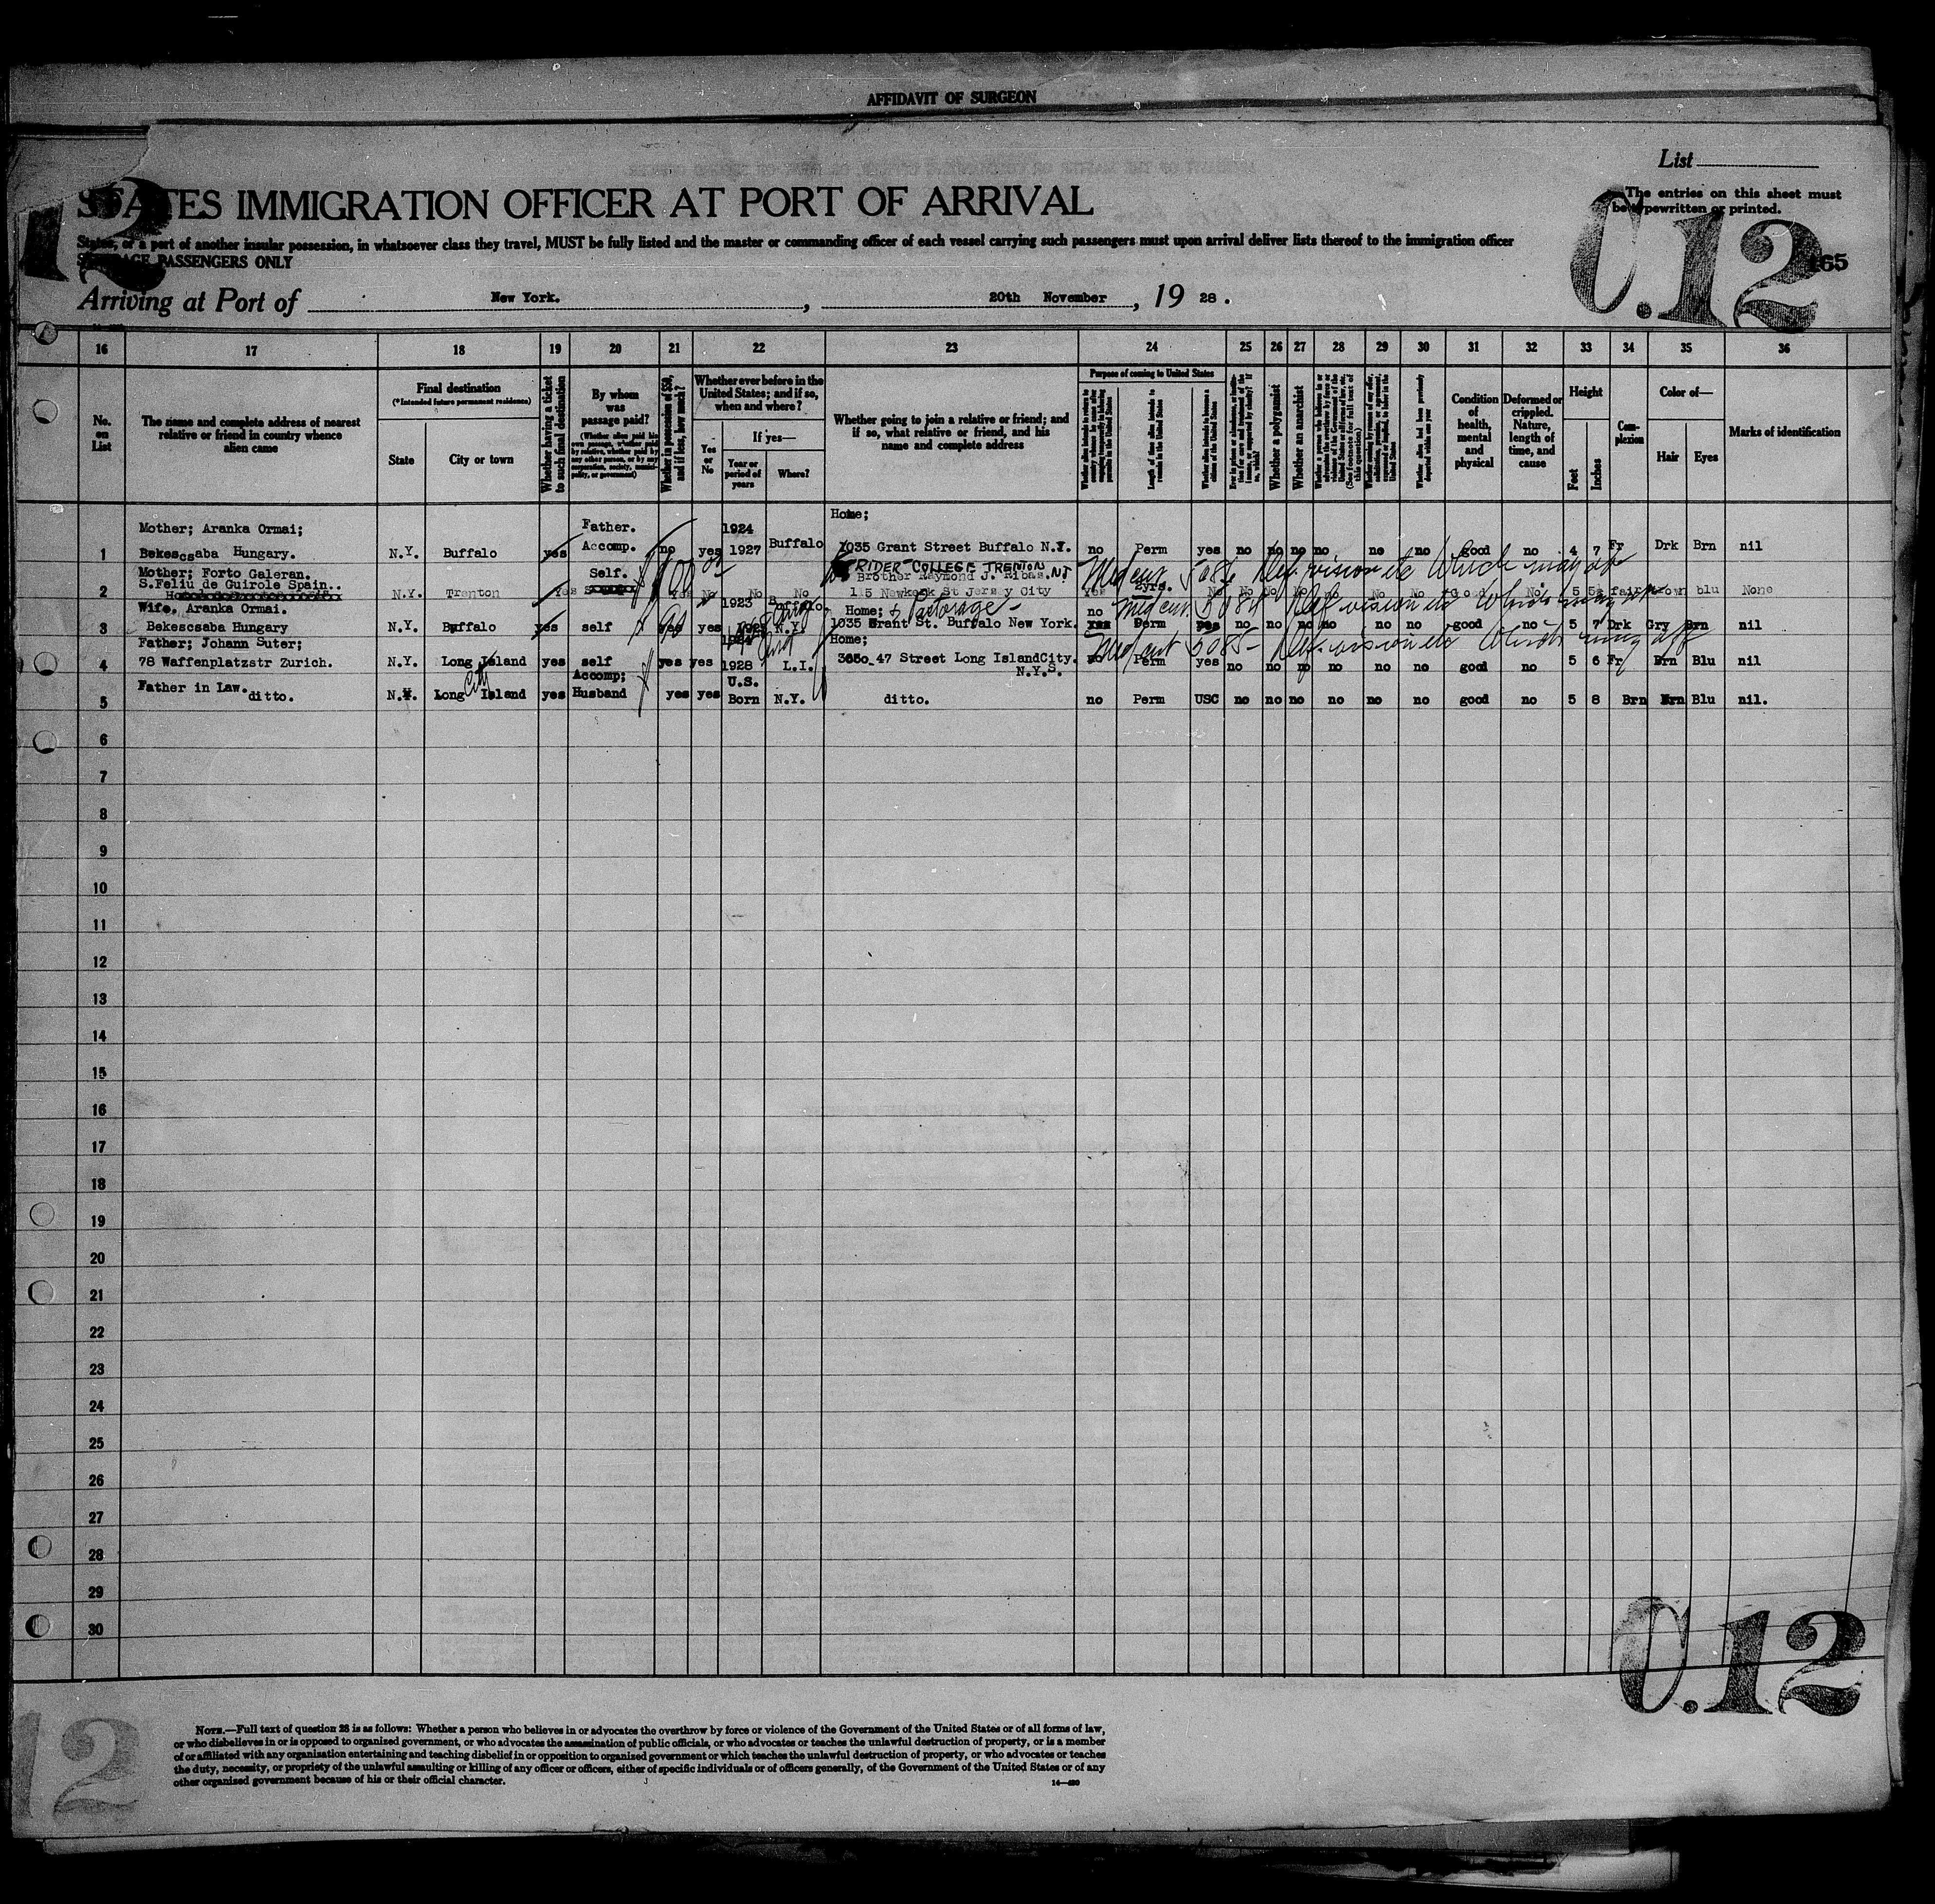 AFFIDAVIT OF SURGEON
List
The entries on this sheet must
be typewritten or printed.
STATES IMMIGRATION OFFICER AT PORT OF ARRIVAL
C.12
165
States, or a port of another insular possession, in whatsoever class they travel, MUST be fully listed and the master or commanding officer of each vessel carrying such passengers must upon arrival deliver lists thereof to the immigration officer
PASSENGERS ONLY
Arriving at Port of New York. , 20th November , 19 28 .
16 17 18 19 20 21 22 23 24 25 26 27 28 29 30 31 32 33 34 35 36
No. on List
The name and complete address of nearest relative or friend in country whence alien came
Final destination
(*Intended future permanent residence)
State
City or town
Whether having a ticket to such final destination
By whom was passage paid?
(Whether alien paid his own passage, whether paid by relative, whether paid by any other person, or by any corporation, society, municipality, or government)
Whether in possession of $50, and if less, how much?
Whether ever before in the United States; and if so, when and where?
Yes or No
If yes—
Year or period of years
Where?
Whether going to join a relative or friend; and if so, what relative or friend, and his name and complete address
Purpose of coming to United States
Length of time alien intends to remain in the United States
Whether alien intends to become a citizen of the United States
Whether a polygamist
Whether an anarchist
Condition of health, mental and physical
Deformed or crippled. Nature, length of time, and cause
Height
Feet
Inches
Complexion
Color of—
Hair
Eyes
Marks of identification
Mother; Aranka Ormai; Father. 1924 Home;
1 Bekescsaba Hungary. N.Y. Buffalo yes Accomp. no yes 1927 Buffalo 1035 Grant Street Buffalo N.Y. no Perm yes no no no no no no good no 4 7 Fr Drk Brn nil
RIDER COLLEGE TRENTON N.J
Mother; Forto Galeran. Self. Brother Raymond J. Ribas.
S.Feliu de Guirole Spain..
2 N.Y. Trenton Yes Yes No No No 115 Newkeek St Jersey City Yes 2yrs. No No No No No No No Good No 5 5½ fair brown blu None
Med cert 5086 Def. vision etc which may aff
Wife, Aranka Ormai. 1923 Buffalo Home;
3 Bekescsaba Hungary N.Y. Buffalo yes self yes yes N.Y. 1035 Grant St. Buffalo New York. no yes Perm yes no no no no no no good no 5 7 Drk Gry Brn nil
Med cert. 5084 Def vision etc which may aff
Father; Johann Suter; 1924 Home;
4 78 Waffenplatzstr Zurich. N.Y. Long Island City yes self yes yes 1928 L.I. 3650 47 Street Long IslandCity. N.Y.S. no Perm yes no no no no no no good no 5 6 Fr Brn Blu nil
Med cert 5085- Def. vision etc which may aff
Father in Law. Accomp; U.S.
5 ditto. N.Y. Long Island yes Husband yes yes Born N.Y. ditto. no Perm USC no no no no no no good no 5 8 Brn Brn Blu nil.
6
7
8
9
10
11
12
13
14
15
16
17
18
19
20
21
22
23
24
25
26
27
28
29
30
C.12
12
NOTE.—Full text of question 28 is as follows: Whether a person who believes in or advocates the overthrow by force or violence of the Government of the United States or of all forms of law,
or who disbelieves in or is opposed to organized government, or who advocates the assassination of public officials, or who advocates or teaches the unlawful destruction of property, or is a member
of or affiliated with any organization entertaining and teaching disbelief in or opposition to organized government or which teaches the unlawful destruction of property, or who advocates or teaches
the duty, necessity, or propriety of the unlawful assaulting or killing of any officer or officers, either of specific individuals or of officers generally, of the Government of the United States or of any
other organized government because of his or their official character.
14—480